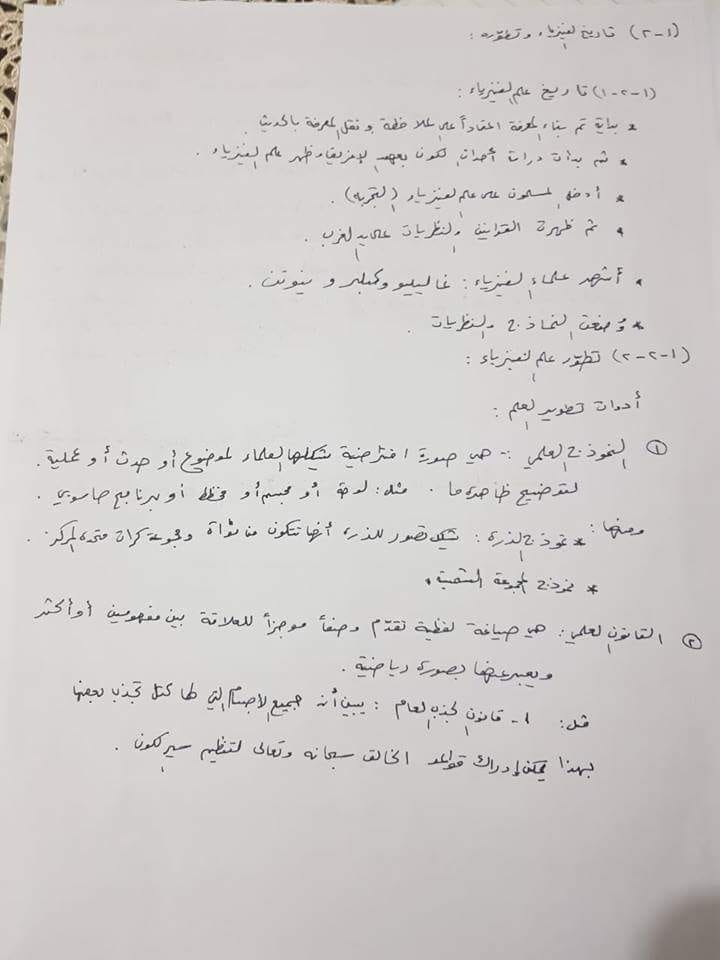 (١-٢) تاريخ الفيزياء وتطوره :
(١-٢-١) تاريخ علم الفيزياء :
* بداية تم بناء المعرفة اعتماداً على الملاحظة ونقل المعرفة بالحديث .
* ثم بدأت دراسات أحداث الكون بعهد الإغريق وظهر علم الفيزياء .
* أدخل المسلمون على علم الفيزياء (التجربة) .
* ثم ظهرت القوانين والنظريات على يد الغرب .
* أشهر علماء الفيزياء : غاليليو وكبلر و نيوتن .
* وُضعت النماذج والنظريات .
(١-٢-٢) تطور علم الفيزياء :
أدوات تطوير العلم :
① النموذج العلمي :- هي صورة افتراضية يشكلها العلماء لموضوع أو حدث أو عملية .
لتوضيح ظاهرة ما . مثل : لوحة أو مجسم أو مخطط أو برنامج حاسوبي .
ومنها : * نموذج الذرة : تصور للذرة أنها تتكون من نواة ومجموعة كرات متحدة المركز .
* نموذج المجموعة الشمسية .
② القانون العلمي : هي صياغة لفظية تقدّم وصفاً موجزاً للعلاقة بين مفهومين أو أكثر
ويعبر عنها بصورة رياضية .
مثل : ١- قانون الجذب العام : يبين أن جميع الأجسام التي لها كتل تجذب بعضها
بهذا يمكن إدراك قواعد الخالق سبحانه وتعالى لتنظيم سير الكون .